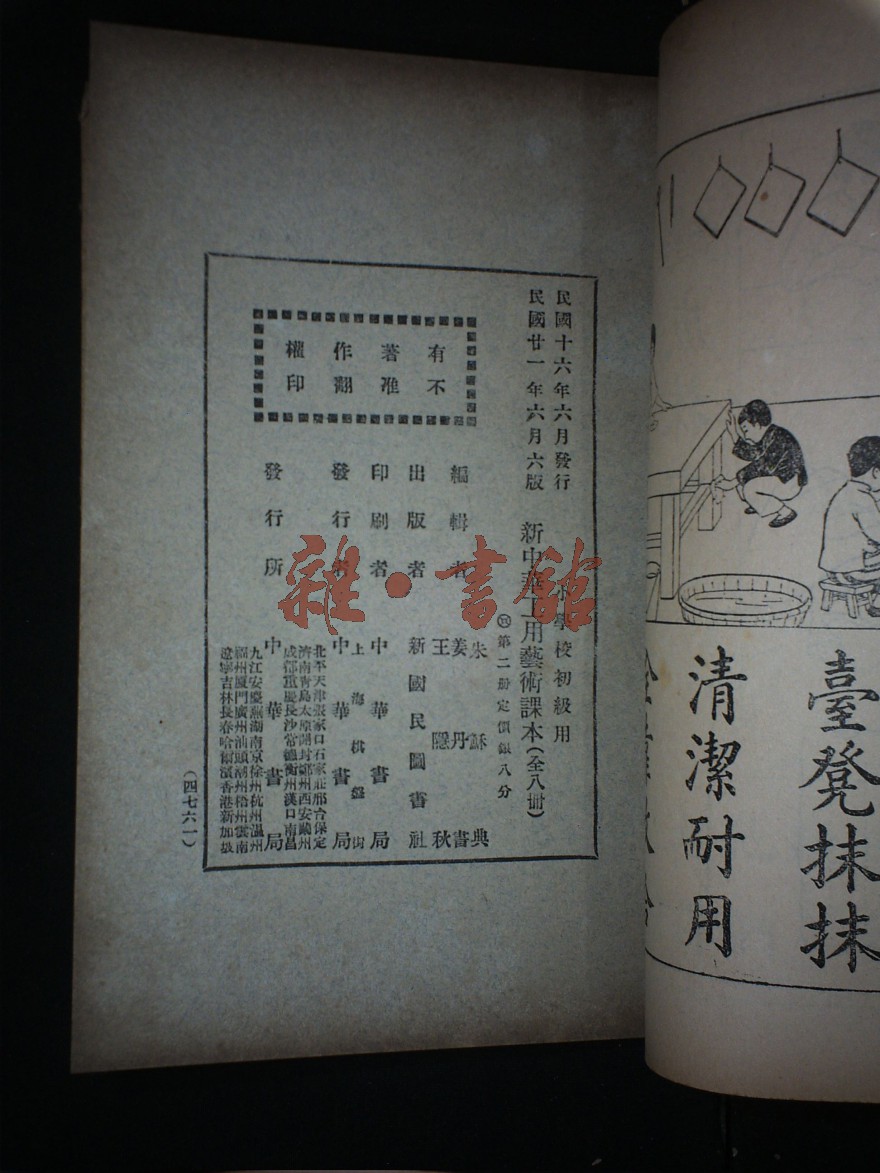 臺凳抹抹
清潔耐用
民國十六年六月發行
民國廿一年六月六版
學校初級用
新中華工用藝術課本(全八冊)
第二册定價銀八分
有著作權
不准翻印
編輯者 朱穌典 姜丹書 王隱秋
出版者 新國民圖書社
印刷者 中華書局
發行者 中華書局
上海棋盤街
發行所 中華書局
北平天津張家口石家莊邢台保定
濟南青島太原開封鄭州西安蘭州
成都重慶長沙常德衡州漢口南昌
九江安慶蕪湖南京徐州杭州溫州
福州厦門廣州汕頭潮州梧州雲南
遼寧吉林長春哈爾濱香港新加坡
(四七六一)
雜·書館